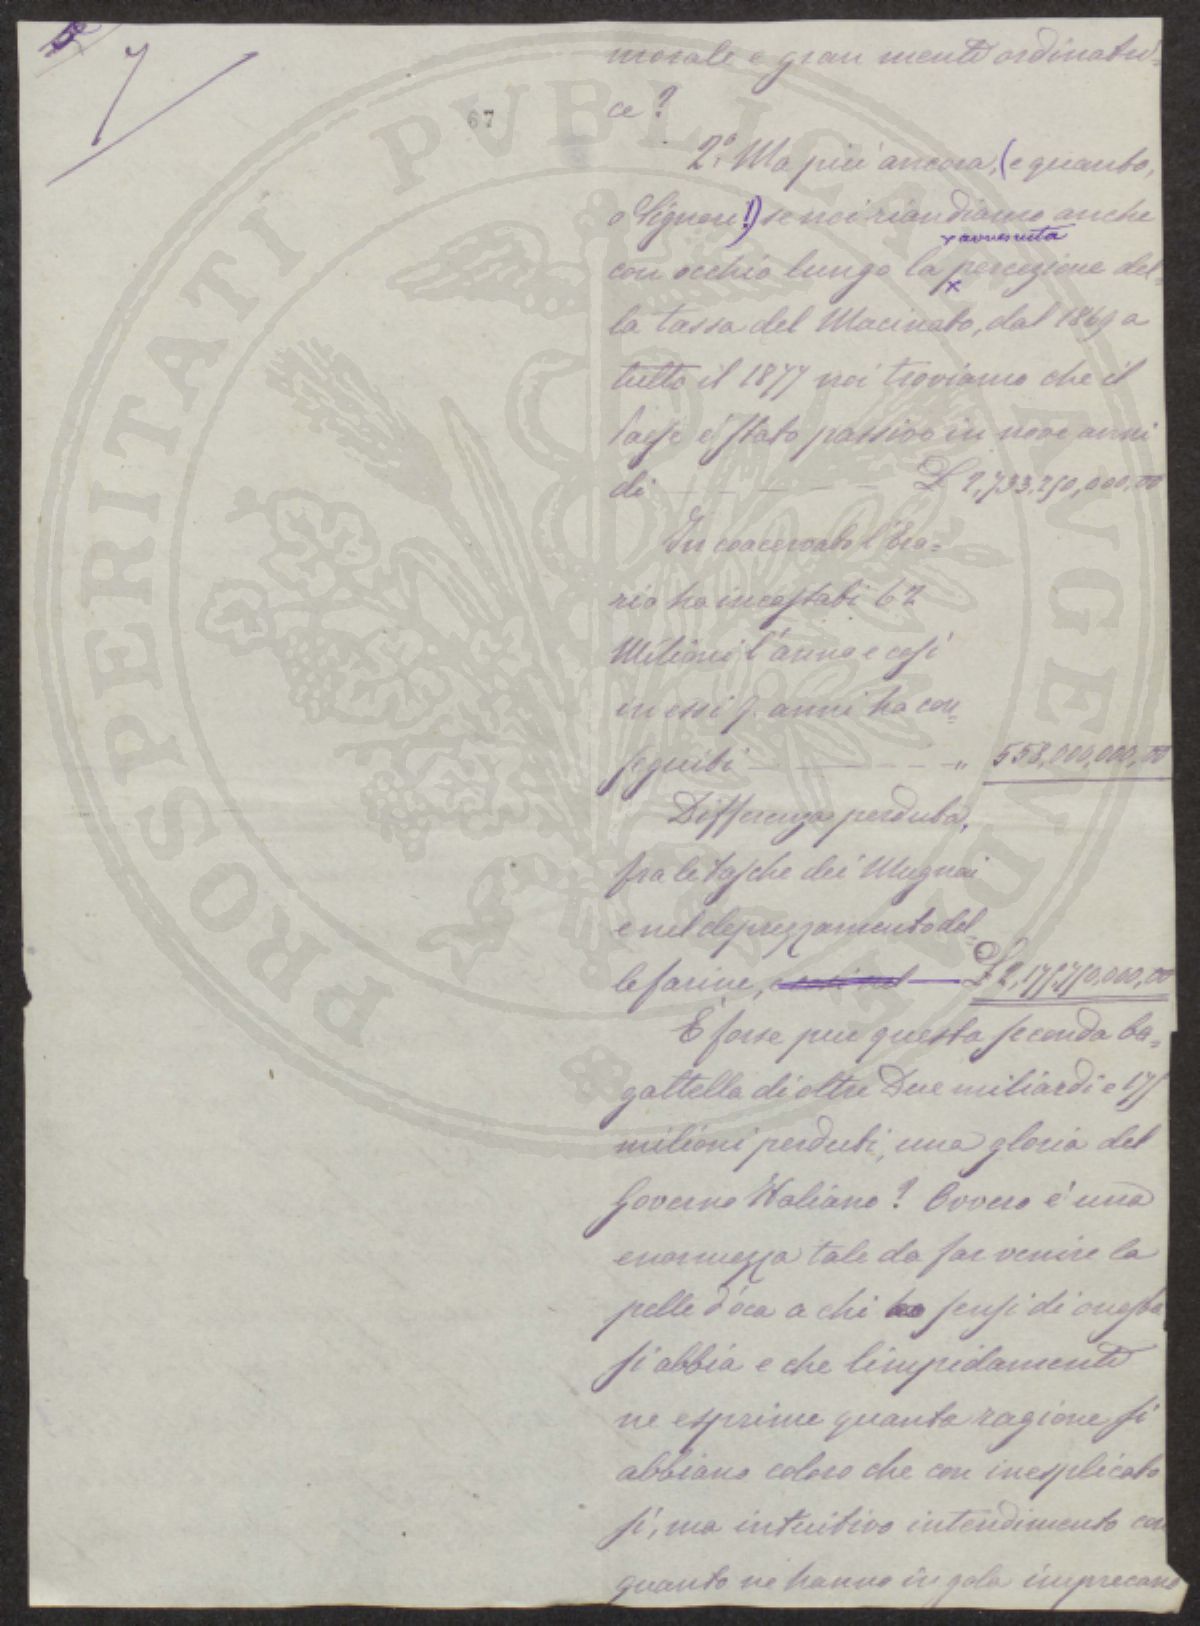 7
67
morale e gran mente ordinatri=
ce?
2.° Ma più ancora, (e quanto,
o Signore!) se noi riandiamo anche
x avvenuta
con occhio lungo la x percezione del=
la tassa del Macinato, dal 1869 a
tutto il 1877 noi troviamo che il
Paese è stato passivo in nove anni
di — — — — — £ 2,733,750,000,00
In coacervato l'Era=
rio ha incassati 62
Milioni l'anno e così
in essi 9. anni ha con=
seguiti — — — — — " 558,000,000,00
Differenza perduta,
fra le tasche dei Mugnai
e nel deprezzamento del=
le farine, — £ 2,175,750,000,00
È forse pur questa seconda ba=
gattella di oltre Due miliardi e 175
milioni perduti, una gloria del
Governo Italiano? Ovvero è una
enormezza tale da far venire la
pelle d'oca a chi sensi di onestà
si abbia e che limpidamente
ne esprime quanta ragione si
abbiano coloro che con inesplicato
sì, ma intuitivo intendimento con
quanto ne hanno in gola imprecano
PROSPERITATI PVBLICAE AVGENDAE